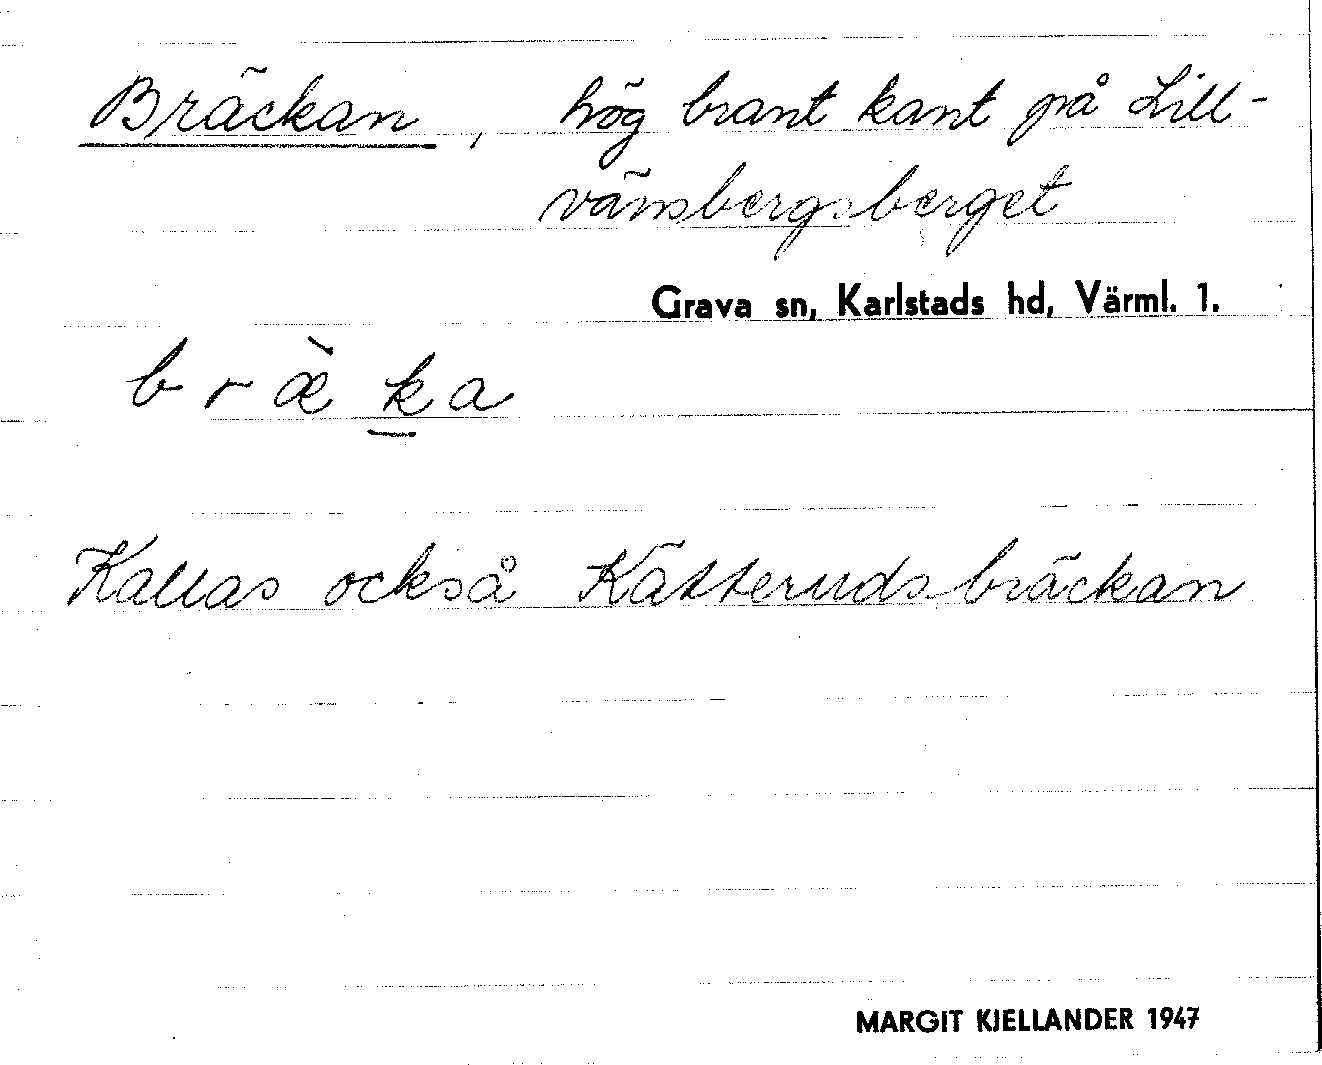 Bräckan, hög brant kant på Lill-
vämsbergsberget
Grava sn, Karlstads hd, Värml. 1.
bræ̀k̲a
Kallas också Kätterudsbräckan
MARGIT KJELLANDER 1947